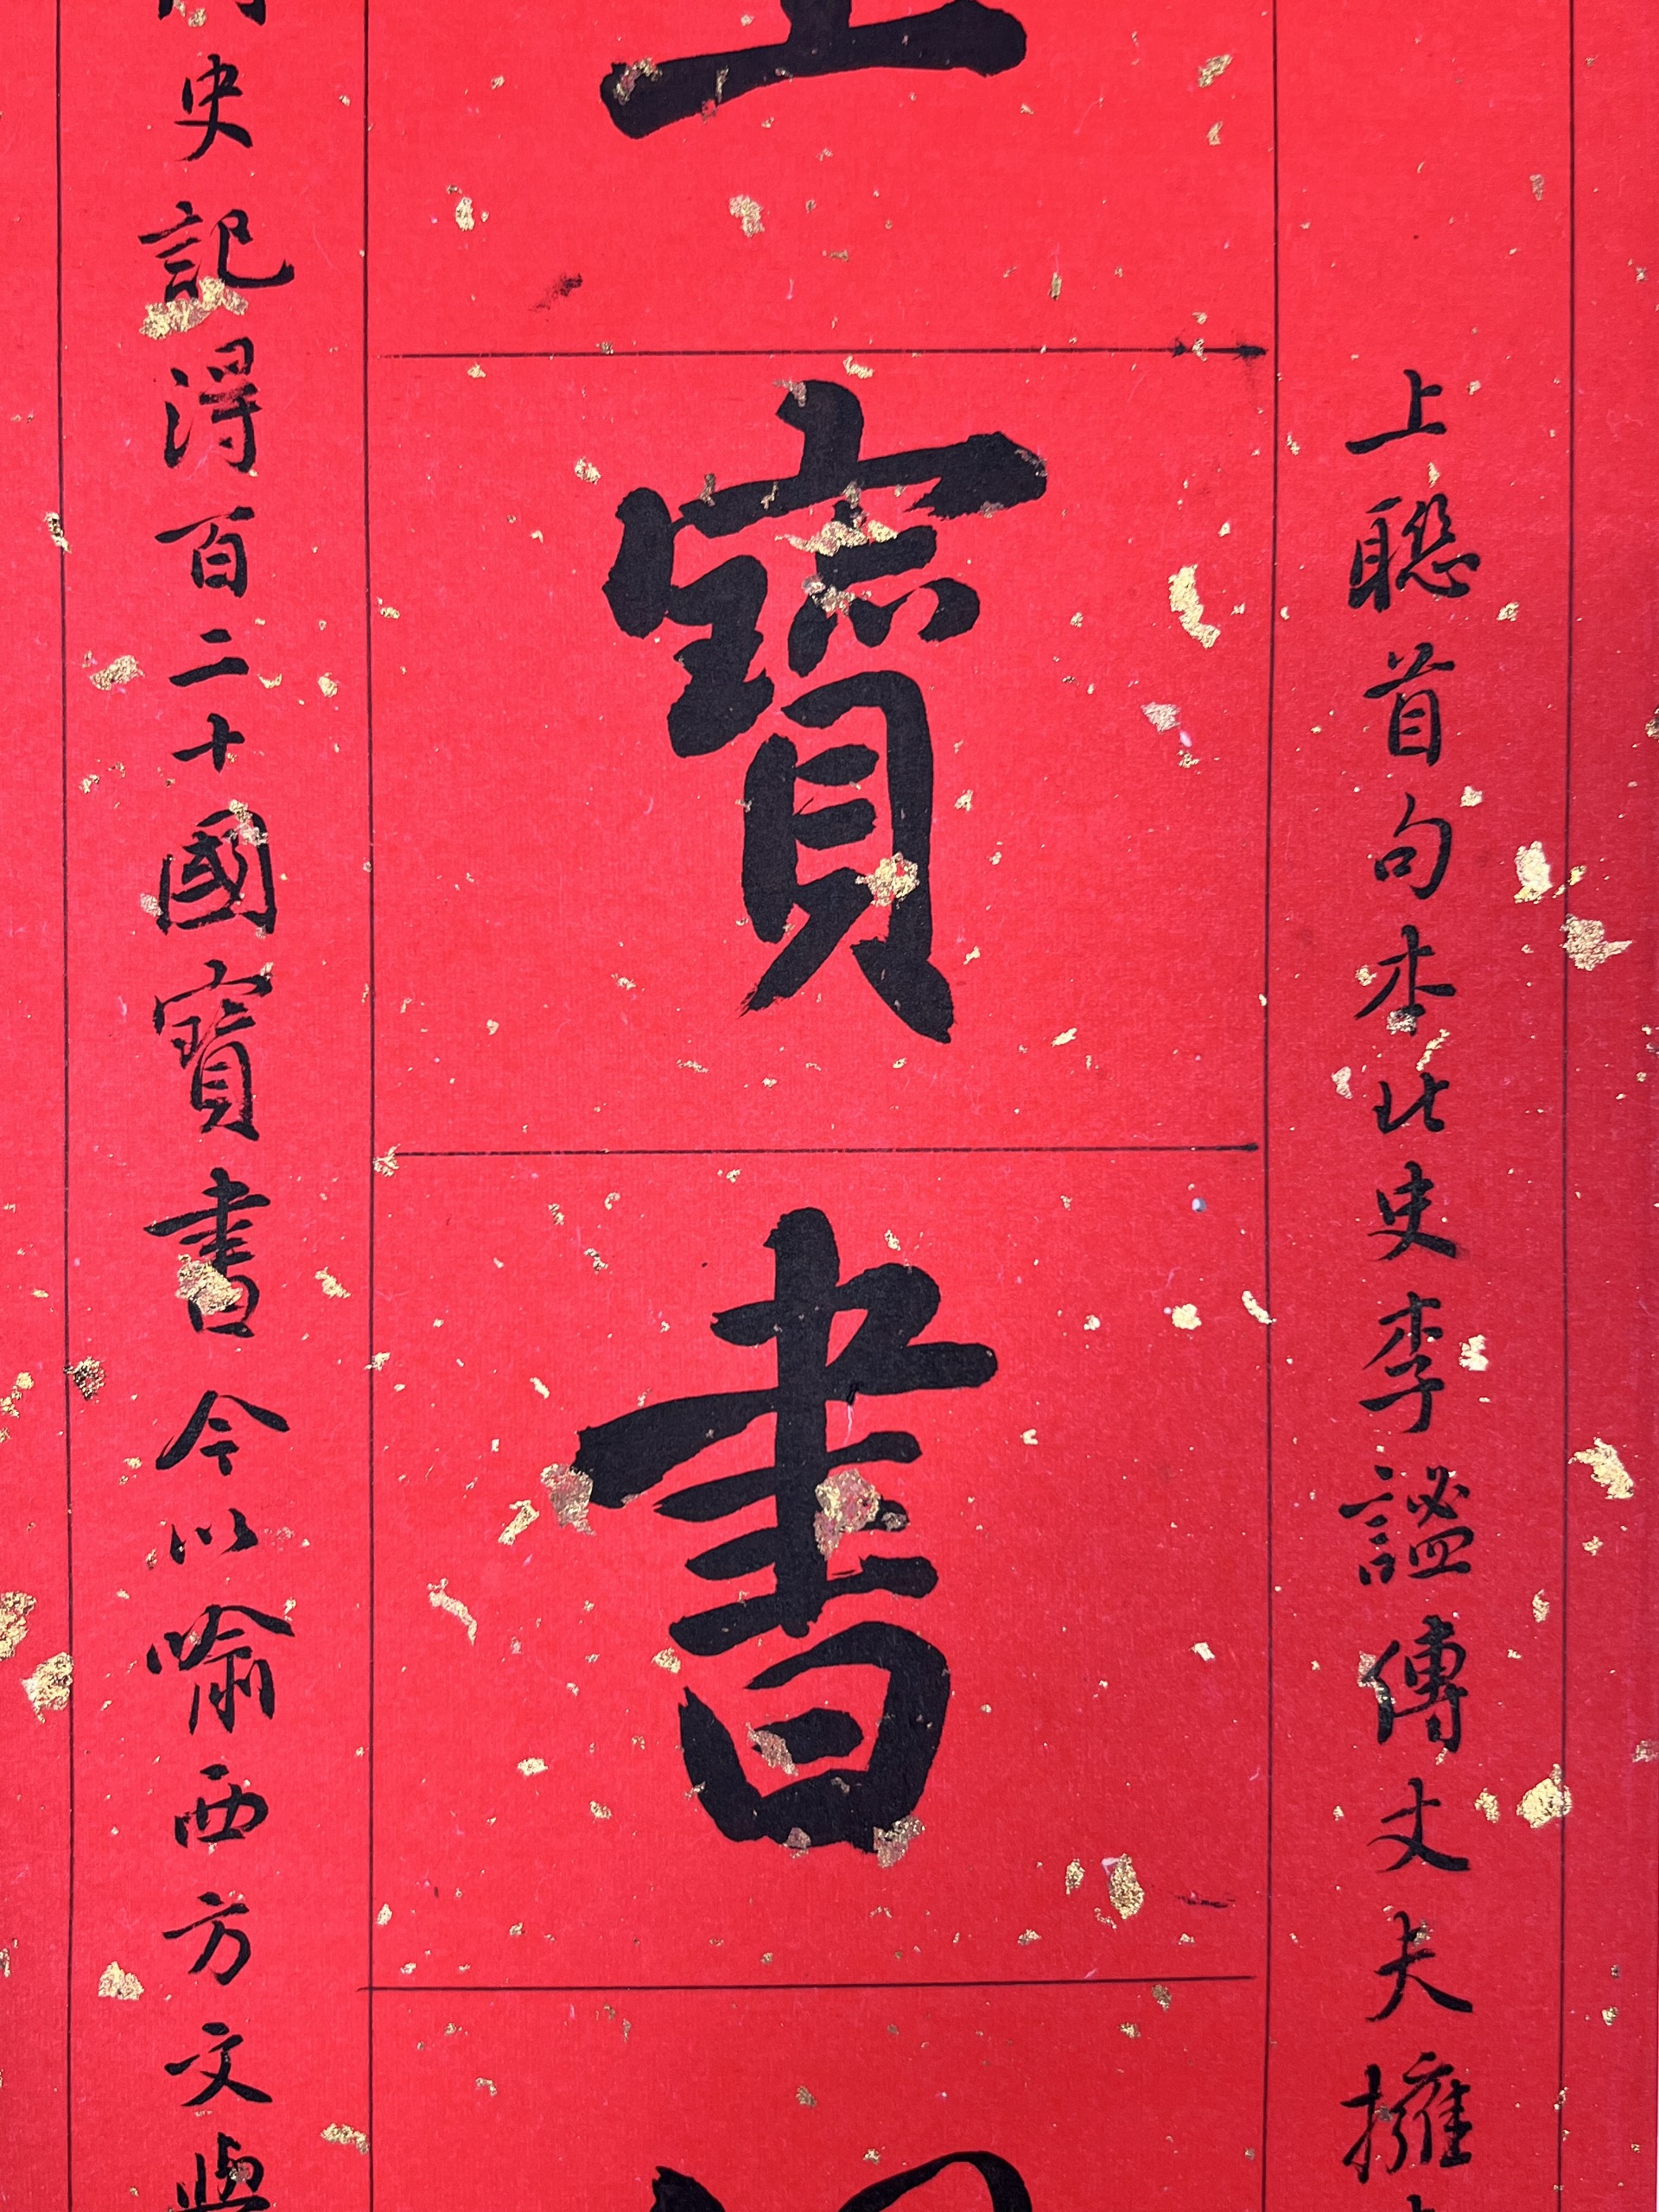 上聯首句本北史李謐傳丈夫擁
寶書
史記得百二十國寶書今以喻西方文